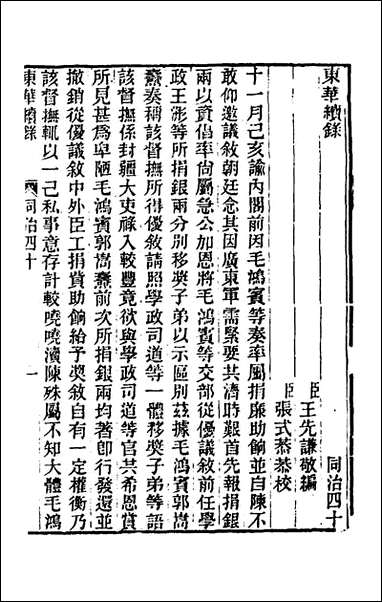 東華續錄
同治四十
臣王先謙敬編
臣張式恭恭校
十一月己亥諭內閣前因毛鴻賓等奏率屬捐廉助餉並自陳不
敢仰邀議敘朝廷念其因廣東軍需緊要共濟時艱首先報捐銀
兩以資倡率尚屬急公加恩將毛鴻賓等交部從優議敘前任學
政王㴋等所捐銀兩分別移獎子弟以示區別茲據毛鴻賓郭嵩
燾奏稱該督撫所得優敘請照學政司道等一體移獎子弟等語
該督撫係封疆大吏祿入較豐竟欲與學政司道等官共希恩賞
所見甚爲卑陋毛鴻賓郭嵩燾前次所捐銀兩均著卽行發還並
撤銷從優議敘中外臣工捐貲助餉給予獎敘自有一定權衡乃
該督撫輒以一己私事意存計較嘵嘵瀆陳殊屬不知大體毛鴻
東華續錄
同治四十
一